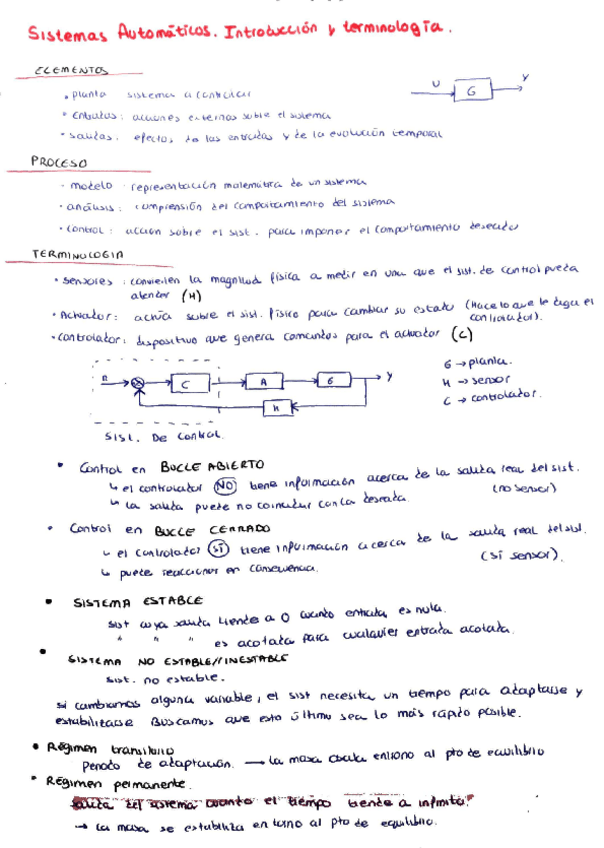 Sistemas Automáticos. Introducción y terminología.
ELEMENTOS
• planta sistema a controlar
• entradas: acciones externas sobre el sistema
• salidas: efectos de las entradas y de la evolución temporal
U G Y
PROCESO
- modelo representación matemática de un sistema
• análisis: comprensión del comportamiento del sistema
• control: acción sobre el sist. para imponer el comportamiento deseado
TERMINOLOGIA
• sensores: convierten la magnitud física a medir en una que el sist. de control pueda
atender (H)
• Actuador: actúa sobre el sist. físico para cambiar su estado (Hace lo que le diga el
controlador).
• controlador: dispositivo que genera comandos para el actuador (C)
R C A G Y
H
G → planta.
H → sensor
C → controlador.
SIST. De Control.
• Control en BUCLE ABIERTO
↳ el controlador NO tiene información acerca de la salida real del sist.
(no sensor)
↳ la salida puede no coincidir con la deseada.
• Control en BUCLE CERRADO
↳ el controlador SÍ tiene información acerca de la salida real del sist.
(sí sensor).
↳ puede reaccionar en consecuencia.
• SISTEMA ESTABLE
sist cuya salida tiende a 0 cuando entrada es nula.
" " " es acotada para cualquier entrada acotada.
• SISTEMA NO ESTABLE//INESTABLE
sist. no estable.
si cambiamos alguna variable, el sist necesita un tiempo para adaptarse y
estabilizarse Buscamos que esto último sea lo más rápido posible.
• Régimen transitorio
Periodo de adaptación. → la masa oscila entorno al pto de equilibrio
• Régimen permanente.
salida del sistema cuando el tiempo tiende a infinito.
→ la masa se estabiliza en torno al pto de equilibrio.